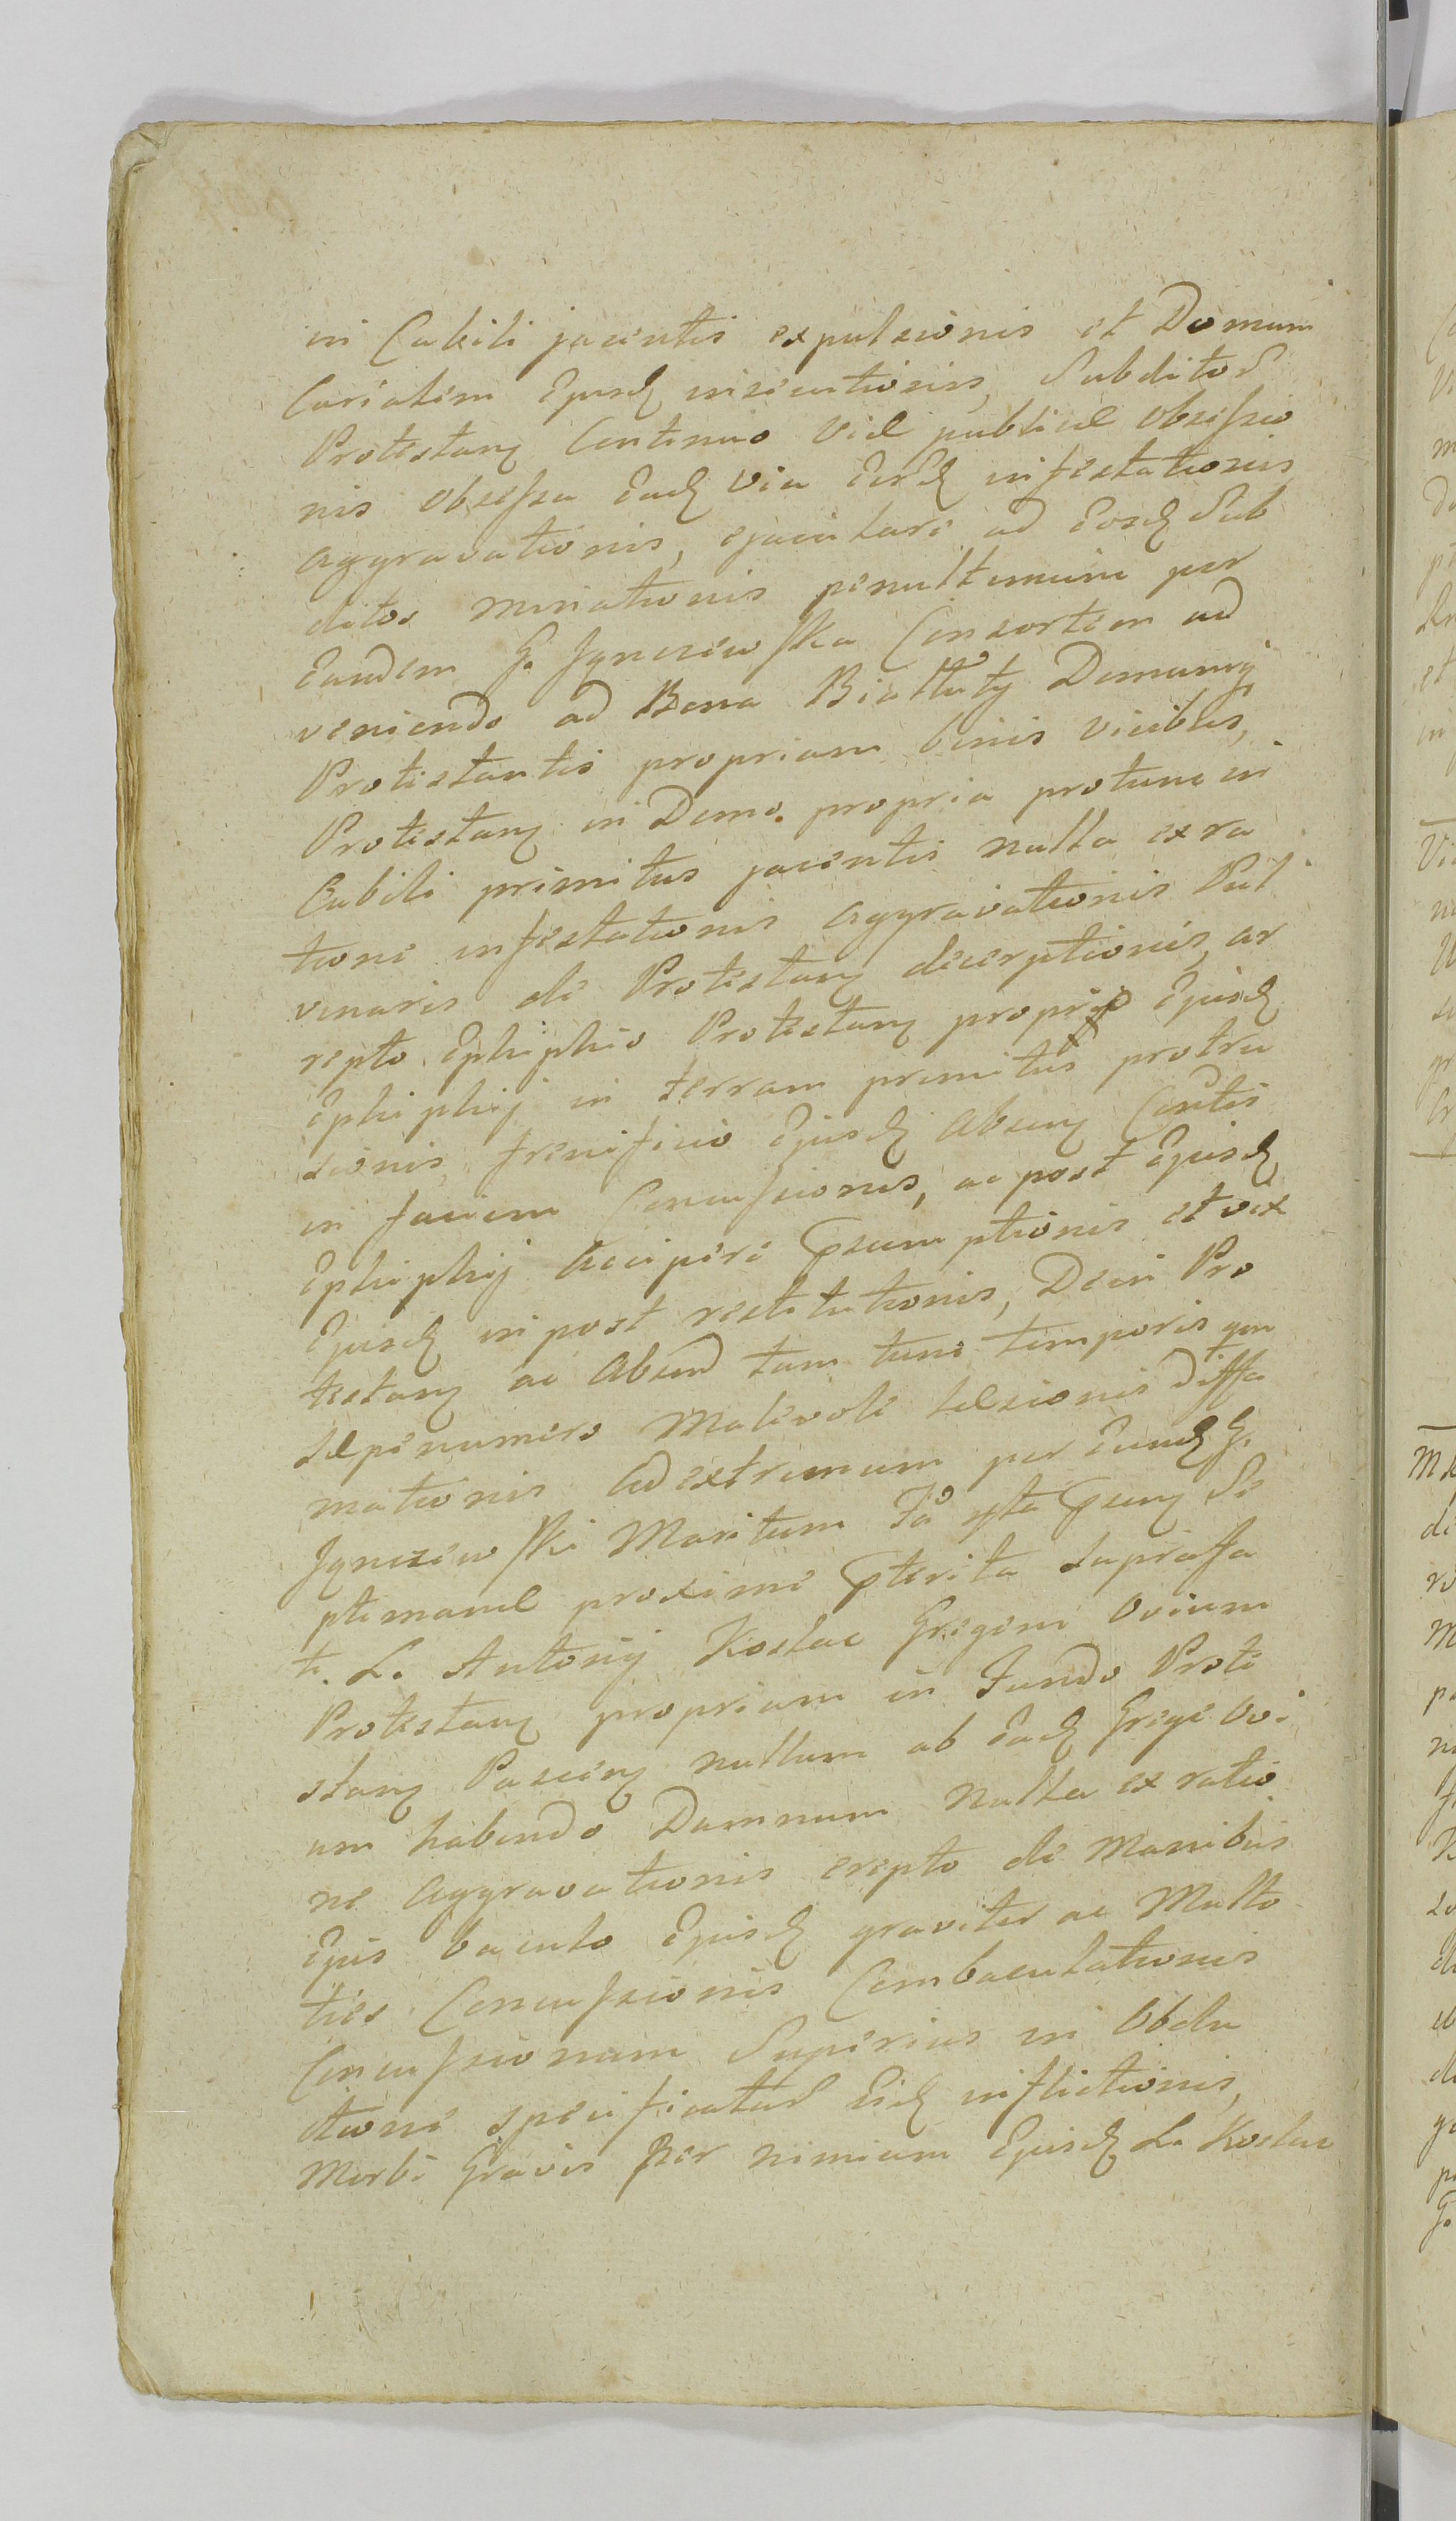 in Cubili jacentis expulsionis et Domum
Curialem Ejusd insecutionis, Subditos
Protestang Continuo Viæ publicæ obsessio
nis obsessa Ead via Eosd infestationis
aggravationis, ejaculare ad Eosd Sub
ditos minationis penultimum per
Eandem G. Jgnesiewska Consortem ad
veniendo ad Bona Bialluty Domumq
Protestantis propriam binis vicibus,
Protestang in Domo propria protunc in
Cubili primitus jacentis nulla ex ra
tione infestationis aggravationis Pul
vinaris de Protestang decerptionis, ar
repto Ephiphio Protestang proprio Ejusd
Ephiphij in terram primitus protru
sionis, frenificio Ejusd Absenq Centis
in faciem Concussionis, ac post Ejusd
Ephiphij Accipere Psumptionis et vix
Ejusd in post restitutionis, Decri Pro
testang ac Absend tam tunc temporis qm
sæpenumero Malevole læsionis diffa
mationis Ad extremum per Eund G.
Jgnesiewski Maritum Fa Psenq Se
ptimanæ proxime Pterita suprassa
ti. L. Antonij Koslac Gregem Ovium
Protestang propriam in Fundo Prote
stang Pascenq nullum ab Ead Grege Ovi
um habendo Damnum Nulla ex ratio
ne Aggravationis erepto de Manibus
Ejus baculo Ejusd graviter ac Multo
ties Concussionis Combaculationis
Concussionum Superius in Obdu
ctione specificatas Eid inflictionis,
Morbi Gravis per nimiam Ejusd L. Koslac